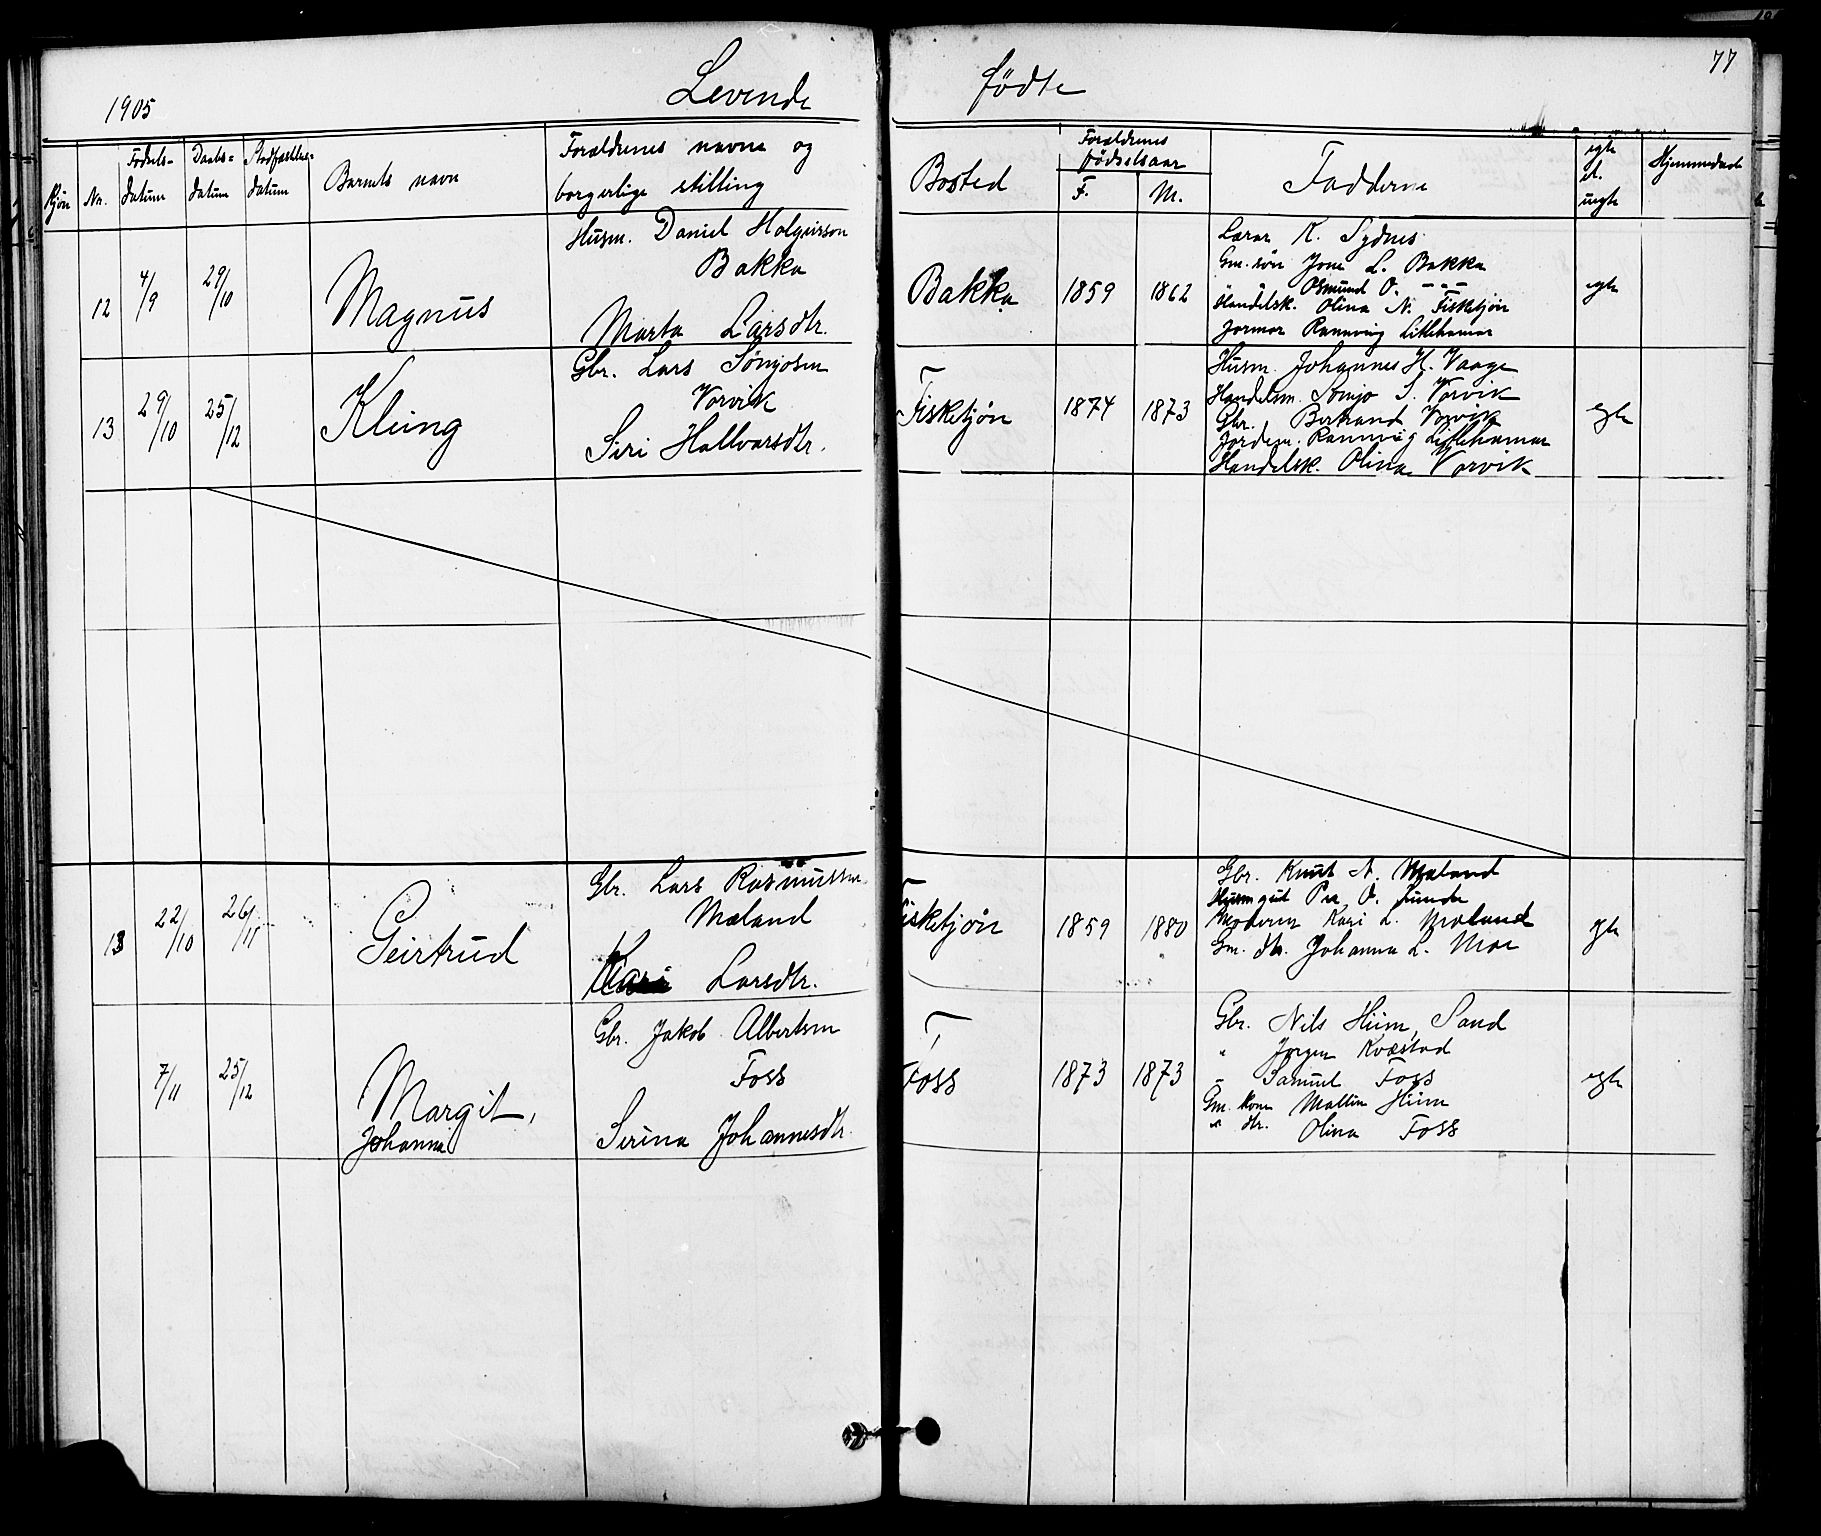 1905
Levende
fødte
77
Kjøn
No.
Fødsels-
datum
Daabs-
datum
Stadfæstelse-
datum
Barnets navn
Forældrenes navne og
borgerlige stilling
Bosted
Forældrenes
fødselsaar
F.
M.
Fadderne
egte
el.
uegte
Hjemmedaab
12
4/9
29/10
Magnus
Husm. Daniel Holgeirson
Bakka
Marta Larsdtr.
Bakka
1859
1862
Lærer K. Sydnes
Gm. søn Jone L. Bakka
" " Osmund O. - " -
Handelsk. Olina N. Fisketjøn
Jormor Rannveig Litlehamar
egte
13
29/10
25/12
Kleing
Gbr. Lars Sønjosen
Vorvik
Siri Hallvarsdtr.
Fisketjøn
1874
1873
Husm. Johannes H. Vaage
Handelsm. Sønjo S. Vorvik
Gbr. Bertrand Vorvik
Jordem. Rannveig Litlehamar
Handelsk. Olina Vorvik
egte
13
22/10
26/11
Geirtrud
Gbr. Lars Rasmussen
Mæland
Kari Larsdtr.
Fisketjøn
1859
1880
Gbr. Knut A. Mæland
Husmgut Per O. Funde
Moderen Kari L. Mæland
Gm. dtr. Johanna L. Moe
egte
7/11
25/12
Margit,
Johanna
Gbr. Jakob Albertsen
Foss
Serina Johannesdtr.
Foss
1873
1873
Gbr. Nils Hiim, Sand
" Jørgen Kvæstad
" Samuel Foss
Gm. kone Mallin Hiim
" dtr. Olina Foss
egte